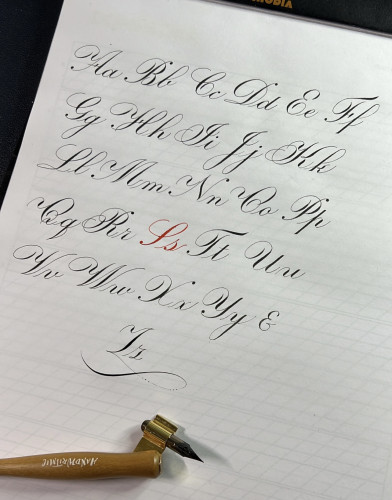 RHODIA
Aa Bb Cc Dd Ee Ff
Gg Hh Ii Jj Kk
Ll Mm Nn Oo Pp
Qq Rr Ss Tt Uu
Vv Ww Xx Yy &
Zz